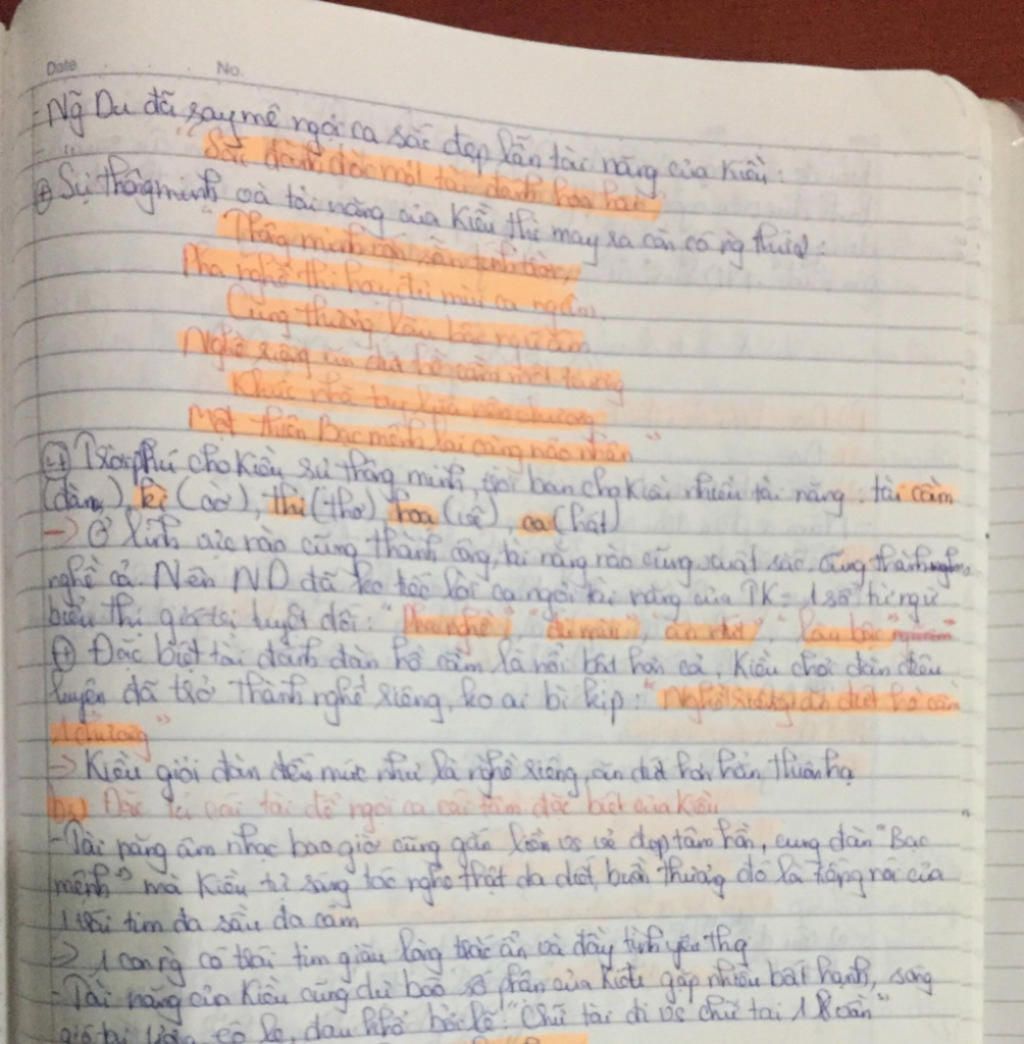 Date No.
- Ng Du đã say mê ngợi ca sắc đẹp lẫn tài năng của Kiều:
"Sắc đành đòi một tài đành hoạ hai"
⊕ Sự thôg minh và tài năng của Kiều thì may ra còn có ng thứ 2:
"Thông minh vốn sẵn tính trời,
Pha nghề thi hoạ đủ mùi ca ngâm.
Cung thương lầu bậc ngũ âm
Nghề riêng ăn đứt hồ cầm một trương
Khúc nhà tay lựa nên chương
Một thiên Bạc mệnh lại càng não nhân"
phú cho Kiều sự thông minh, trời ban cho Kiều nhiều tài năng: tài cầm
(đàn), kì (cờ), thi (thơ), hoạ (vẽ), ca (hát)
-> Ở lĩnh vực nào cũng thành công, tài năng nào cũng xuất sắc, cũng thành
nghề cả. Nên ND đã ko tiếc lời ca ngợi tài năng của TK = 1 số từ ngữ
biểu thị giá trị tuyệt đối: "Pha nghề", "đủ mùi", "ăn đứt", "lầu bậc"
⊕ Đặc biệt tài đánh đàn hồ cầm là nổi bật hơn cả, Kiều chơi đàn điêu
luyện đã trở thành nghề riêng, ko ai bì kịp: "Nghề riêng ăn đứt hồ cầm
1 chương"
-> Kiều giỏi đàn đến mức như là nghề riêng, ăn đứt hơn hẳn thiên hạ
cái tài để ngợi ca cái tâm đặc biệt của Kiều
- Tài năng âm nhạc bao giờ cũng gắn liền vs vẻ đẹp tâm hồn, cung đàn "Bạc
mệnh" mà Kiều tự sáng tác nghe thật da diết, buồn thương đó là tiếng nói của
1 trái tim đa sầu đa cảm
-> 1 con ng có trái tim giàu lòng trắc ẩn và đầy tình yêu thg
- Tài năng của Kiều cũng dự báo số phận của Kiều gặp nhiều bất hạnh, sóng
gió đau khổ bởi lẽ: "Chữ tài đi vs chữ tai 1 vần"